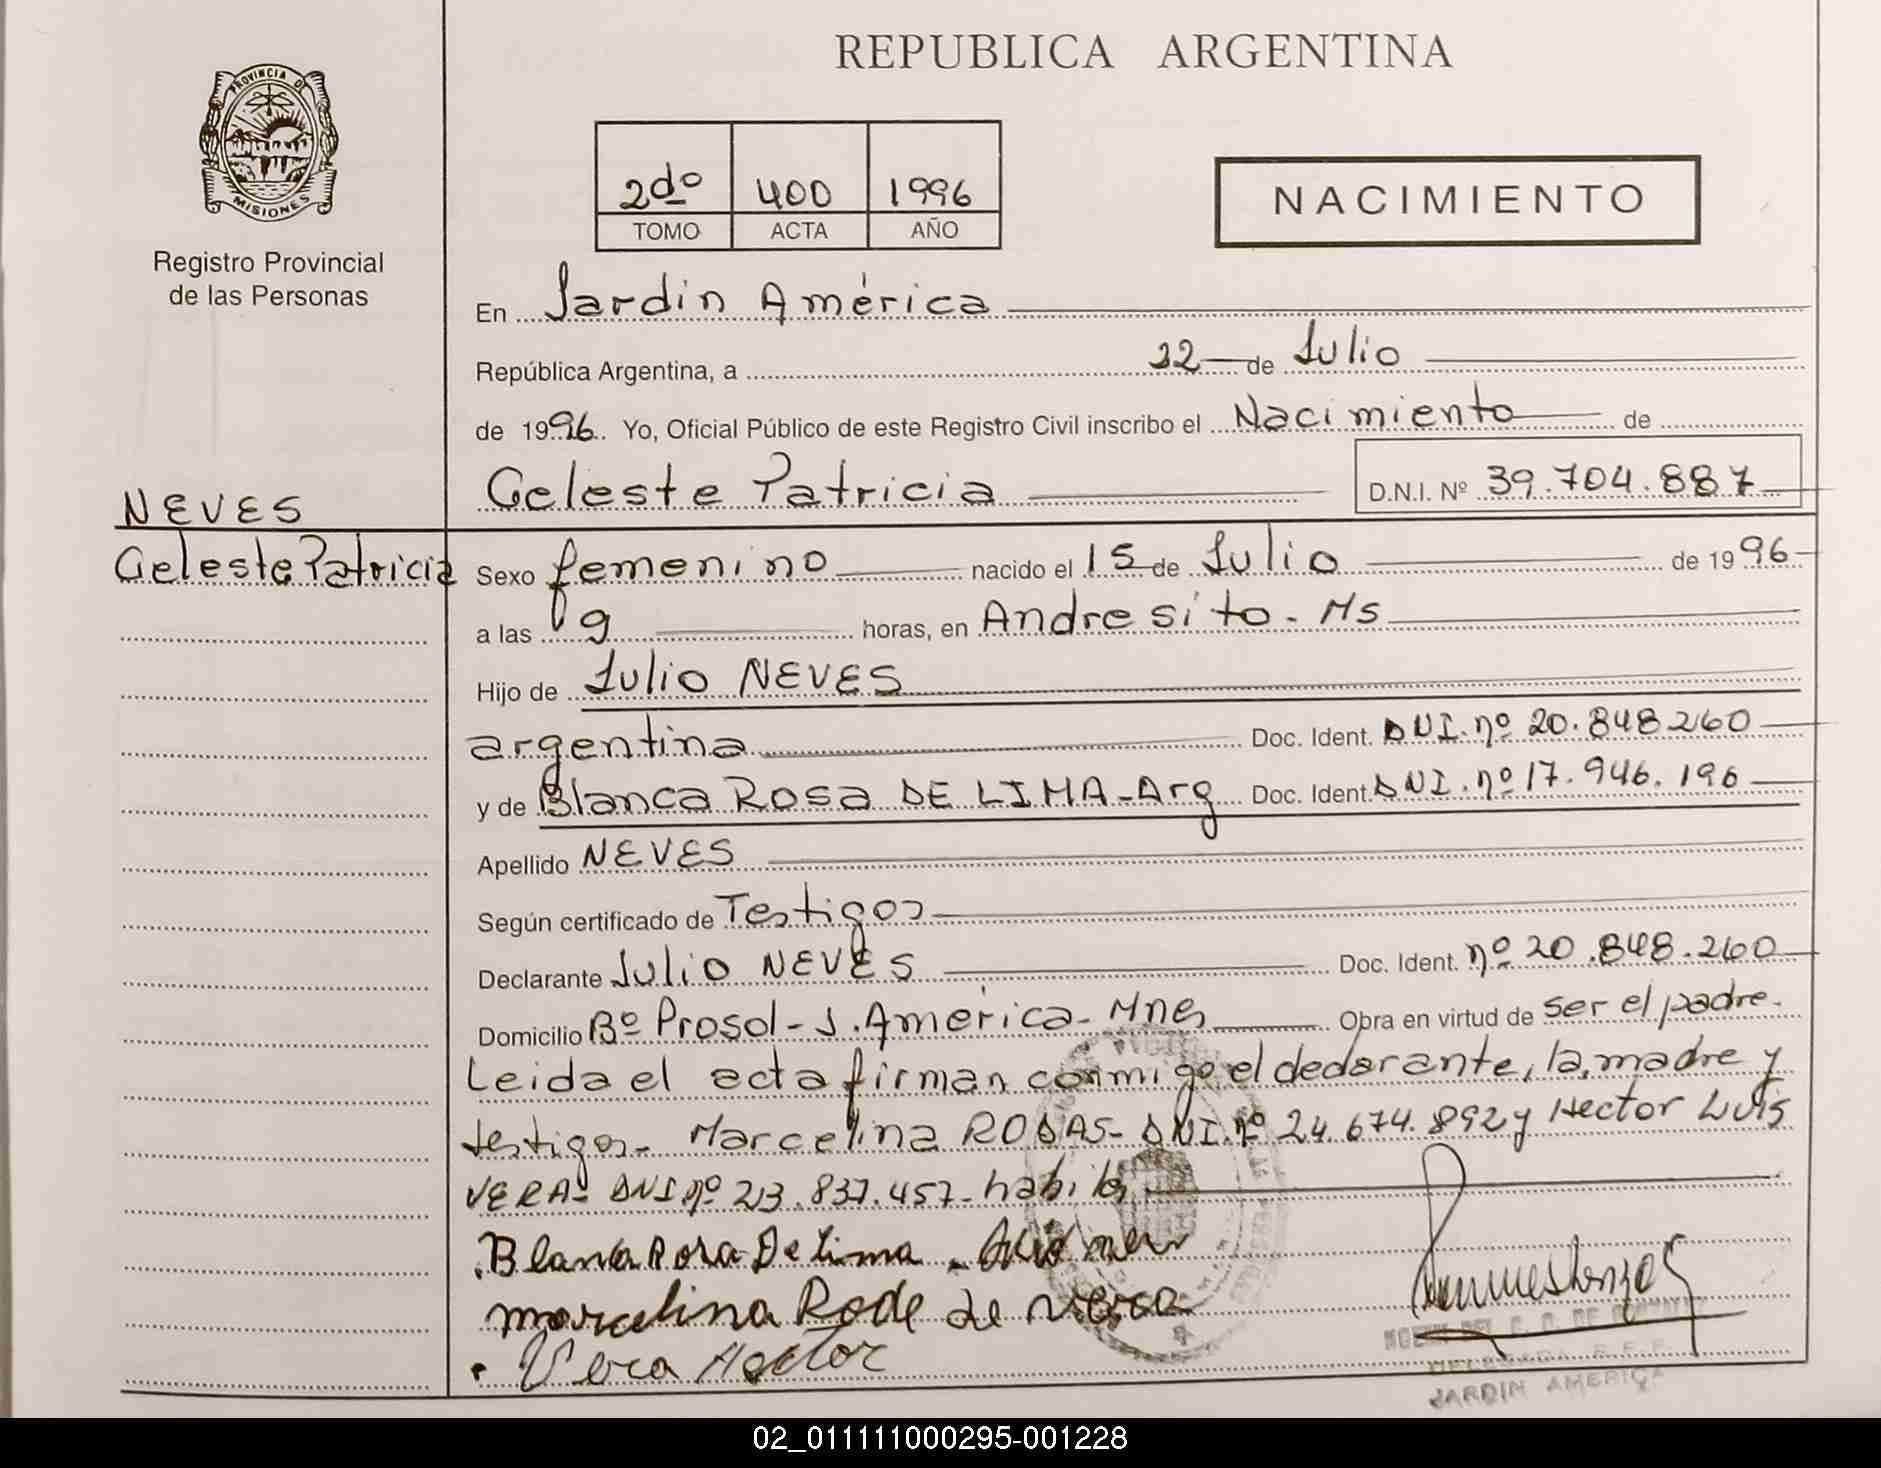 REPUBLICA ARGENTINA
PROVINCIA DE
MISIONES
Registro Provincial
de las Personas
2do 400 1996
TOMO ACTA AÑO
NACIMIENTO
En Jardin América
República Argentina, a 22 de Julio
de 1996. Yo, Oficial Público de este Registro Civil inscribo el Nacimiento de
Celeste Patricia D.N.I. Nº 39.704.887
NEVES
Celeste Patricia
Sexo femenino nacido el 15 de Julio de 1996
a las 9 horas, en Andresito - Ms
Hijo de Julio NEVES
argentina Doc. Ident. DNI. nº 20.848260
y de Blanca Rosa DE LIMA - Arg Doc. Ident. DNI. nº 17.946.196
Apellido NEVES
Según certificado de Testigos
Declarante Julio NEVES Doc. Ident. nº 20.848.260
Domicilio Bº Prosol - J. América - Mnes Obra en virtud de ser el padre.
Leida el acta firman conmigo el declarante, la madre y
testigos - Marcelina RODAS - DNI. nº 24.674.892 y Hector Luis
VERA - DNI nº 23.837.457 - habiles
Blanca Rosa De Lima
marcelina Rode de Vera
Vera Hector
JARDIN AMERICA
02_011111000295-001228